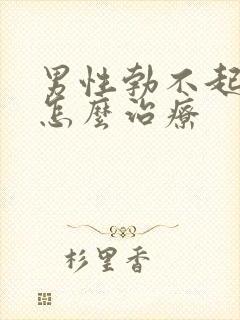 男性勃不起
怎麼治療
杉里香